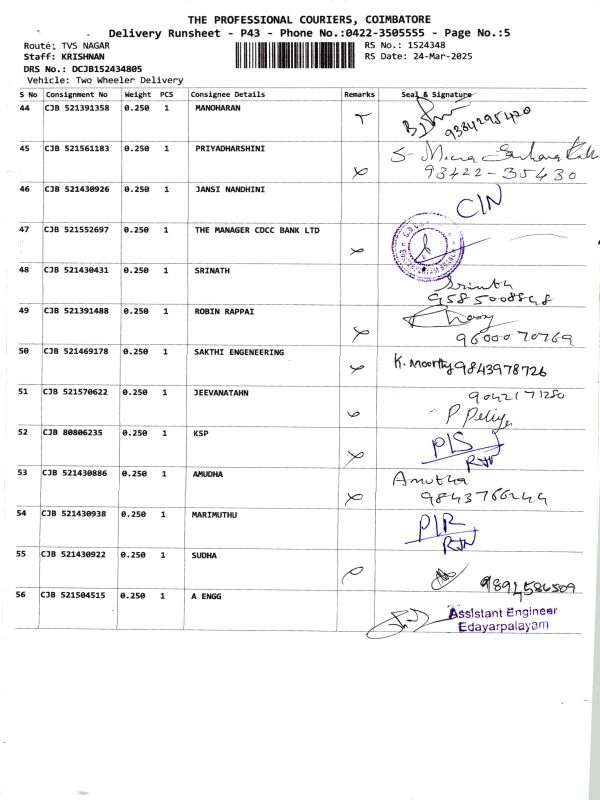 THE PROFESSIONAL COURIERS, COIMBATORE
Delivery Runsheet - P43 - Phone No.:0422-3505555 - Page No.:5
Route: TVS NAGAR
RS No.: 1524348
Staff: KRISHNAN
RS Date: 24-Mar-2025
DRS No.: DCJB152434805
Vehicle: Two Wheeler Delivery
S No Consignment No Weight PCS Consignee Details Remarks Seal & Signature
44 CJB 521391358 0.250 1 MANOHARAN
9384295420
45 CJB 521561183 0.250 1 PRIYADHARSHINI
93422-35430
46 CJB 521430926 0.250 1 JANSI NANDHINI
C/N
47 CJB 521552697 0.250 1 THE MANAGER CDCC BANK LTD
48 CJB 521430431 0.250 1 SRINATH
Srinath
9585008848
49 CJB 521391488 0.250 1 ROBIN RAPPAI
9600070769
50 CJB 521469178 0.250 1 SAKTHI ENGENEERING K. Moorthy 9843978726
51 CJB 521570622 0.250 1 JEEVANATAHN
9042171280
52 CJB 80806235 0.250 1 KSP P/S
RTN
53 CJB 521430886 0.250 1 AMUDHA Amutha
9843766244
54 CJB 521430938 0.250 1 MARIMUTHU P/R
RTN
55 CJB 521430922 0.250 1 SUDHA
9894586509
56 CJB 521504515 0.250 1 A ENGG
Assistant Engineer
Edayarpalayam